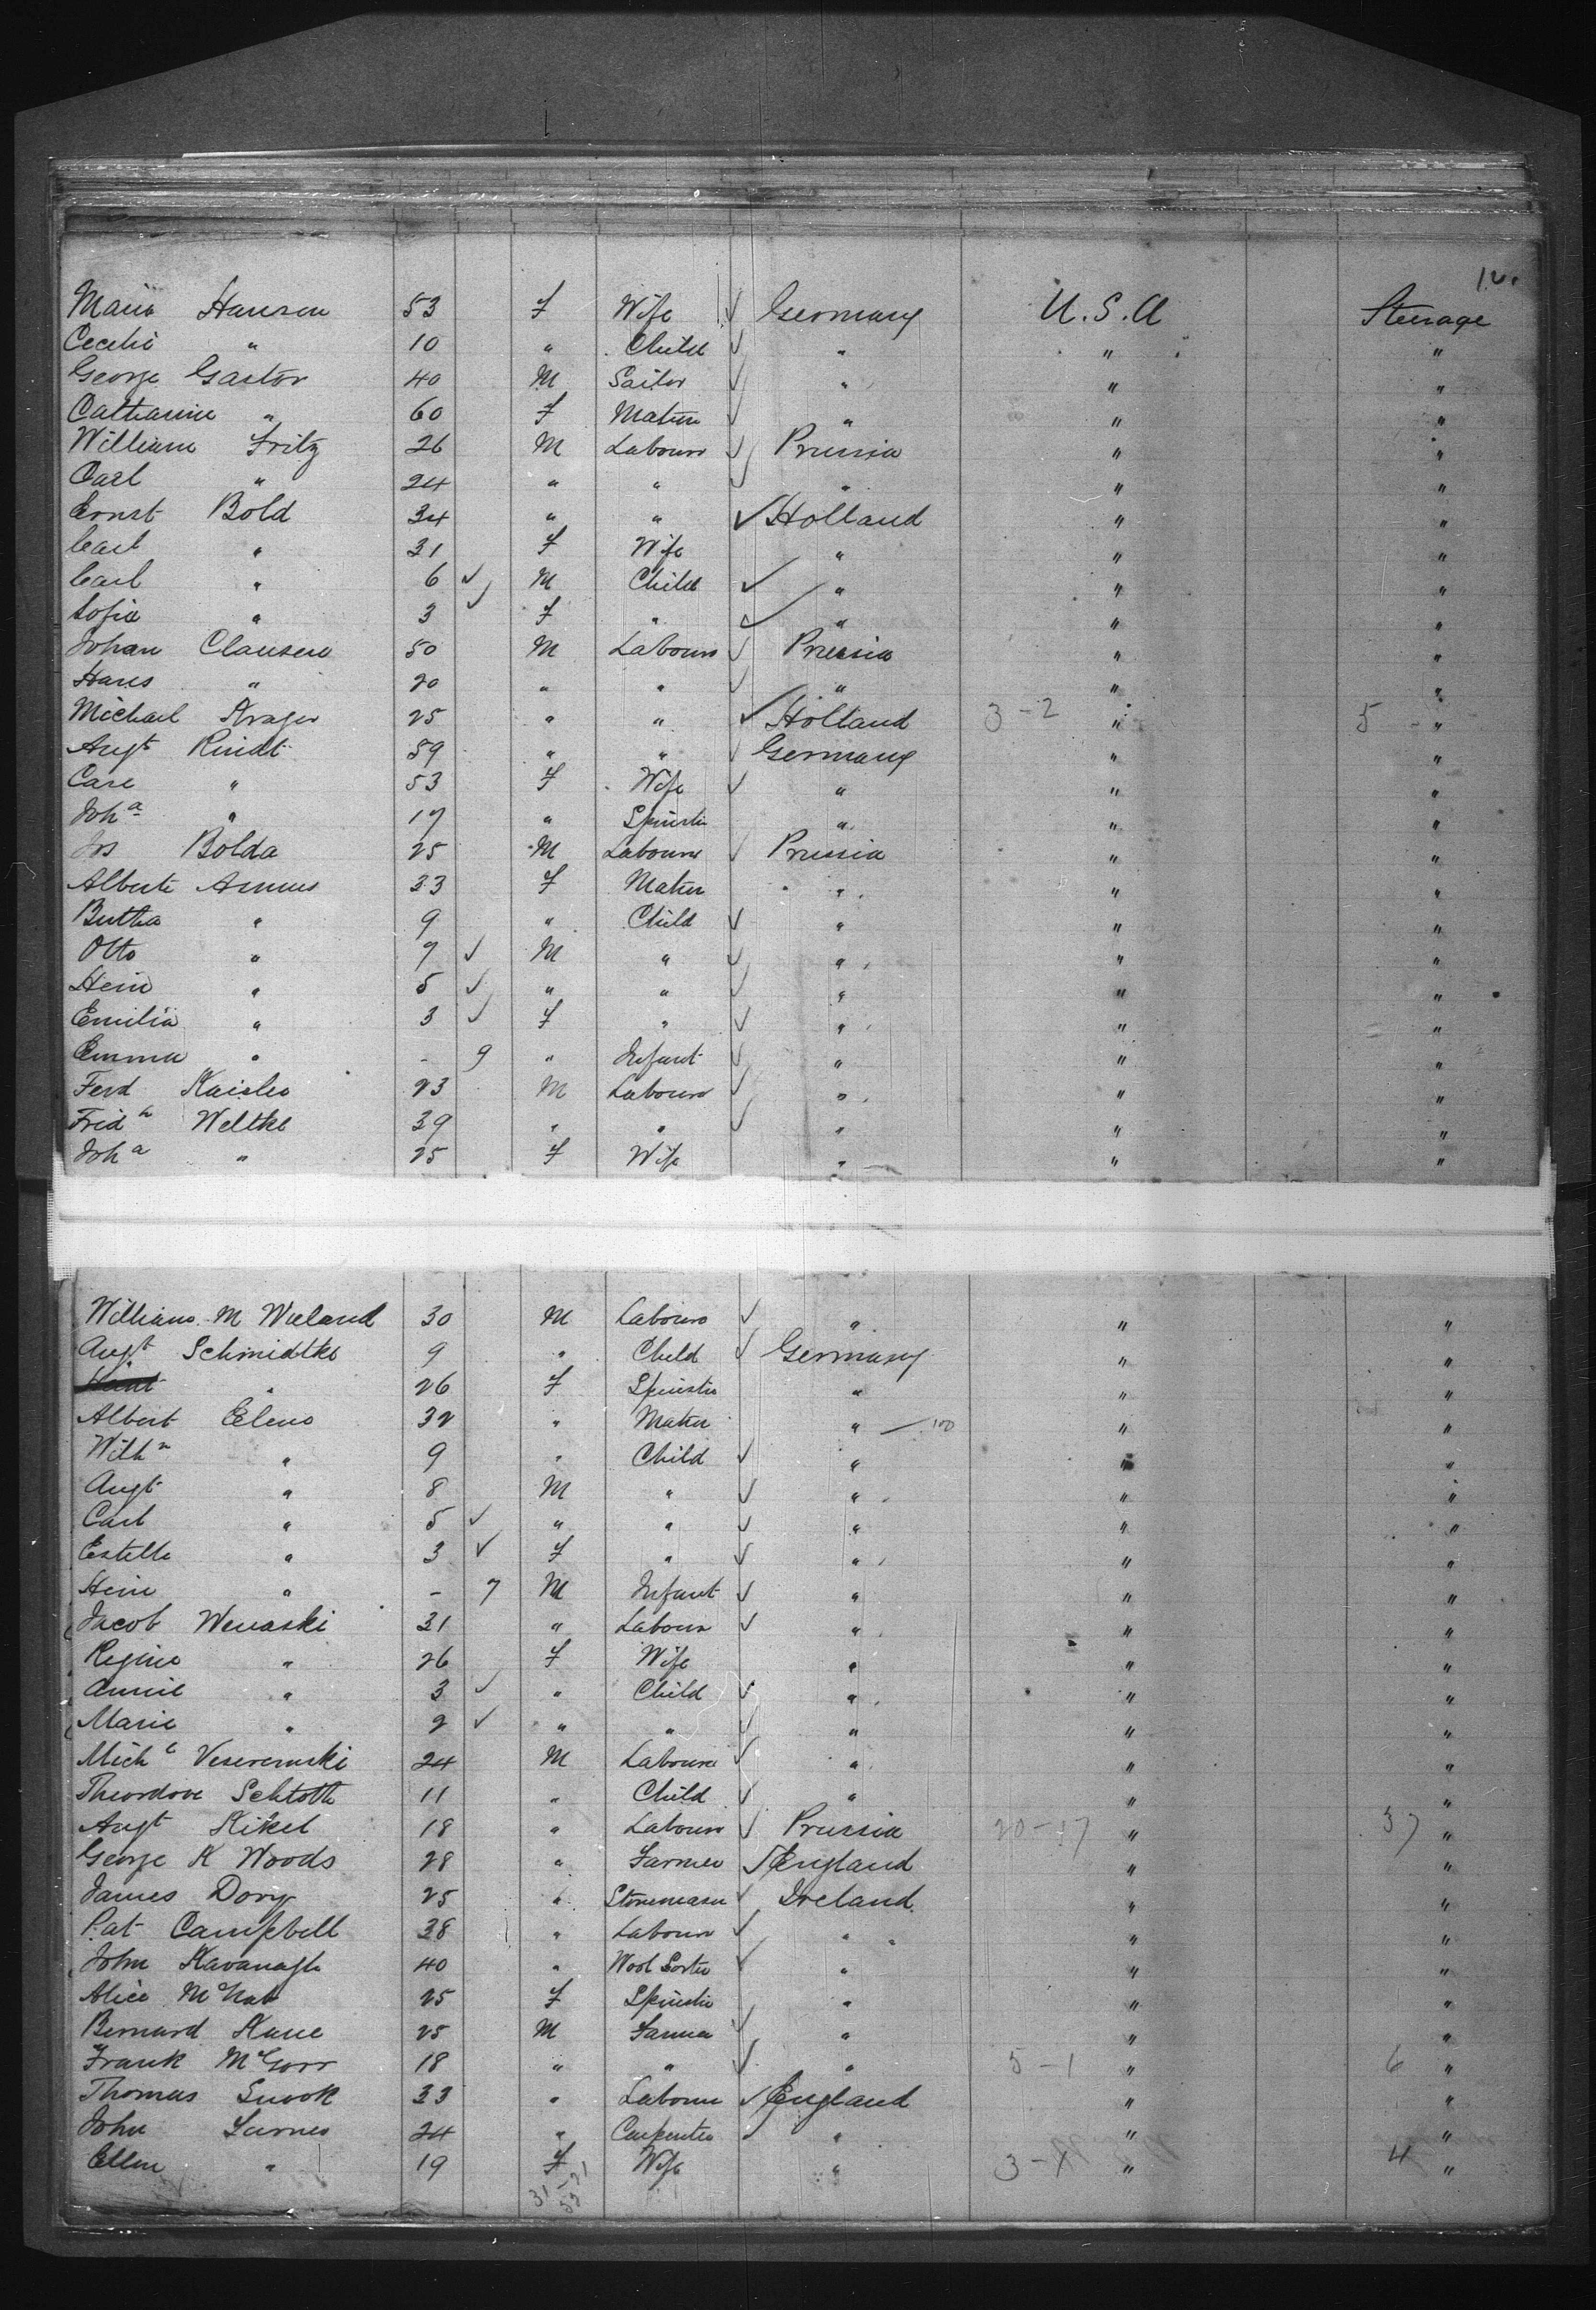 12.
Maria Hansen 53 F Wife ✓ Germany U.S.A Steerage
Cecelia " 10 " Child ✓ " " "
George Gastor 40 M Sailor ✓ " " "
Catharine " 60 F Matron ✓ " " "
William Fritz 26 M Labourer ✓ Prussia " "
Carl " 24 " " ✓ " " "
Ernst Bold 34 " " ✓ Holland " "
Carl " 31 F Wife " " "
Carl " 6 ✓ M Child ✓ " " "
Sofia " 3 ✓ F " ✓ " " "
Johan Clausen 50 M Labourer ✓ Prussia " "
Hans " 20 " " ✓ " " "
Michael Krager 25 " " ✓ Holland 3-2 " 5 - "
Augt Rindt 59 " " ✓ Germany " "
Care " 53 F Wife ✓ " " "
Joha " 17 " Spinster " " "
Jos Bolda 25 M Labourer ✓ Prussia " "
Alberte Asmus 33 F Matron " " "
Bertha " 9 " Child ✓ " " "
Otto " 7 ✓ M " ✓ " " "
Hein " 5 ✓ " " ✓ " " "
Emilia " 3 ✓ F " ✓ " " "
Emma " - 9 " Infant ✓ " " "
Ferd Kaisler 23 M Labourer ✓ " " "
Fridh Weltke 39 " " ✓ " " "
Joha " 25 F Wife " " "
William M Wieland 30 M Labourer ✓ " " "
Augt Schmidtke 9 " Child ✓ Germany " "
" 26 F Spinster " " "
Albert Elens 32 " Matron " 100 " "
Wilhn " 9 " Child ✓ " " "
Augt " 8 M " ✓ " " "
Carl " 5 ✓ " " ✓ " " "
Estelle " 3 ✓ F " ✓ " " "
Hein " - 7 M Infant ✓ " " "
Jacob Wenaski 31 " Labourer ✓ " " "
Regine " 26 F Wife " " "
Annie " 3 ✓ " Child ✓ " " "
Marie " 2 ✓ " " ✓ " " "
Michl 24 M Labourer ✓ " " "
Theordore Schtoth 11 " Child ✓ " " "
Augt Kikel 18 " Labourer ✓ Prussia 20-17 " 37 "
George K Woods 28 " Farmer ✓ England " "
James Dory 25 " Stonemason ✓ Ireland " "
Pat Campbell 38 " Labourer ✓ " " "
John Kavanagh 40 " Wool Sorter ✓ " " "
Alice McNab 25 F Spinster " " "
Bernard Kane 25 M Farmer ✓ " " "
Frank McGorr 18 " " ✓ " 5-1 " 6 "
Thomas Snook 33 " Labourer ✓ England " "
John Larnes 24 " Carpenter ✓ " " "
Ellen " 19 F Wife " 3- " 4 "